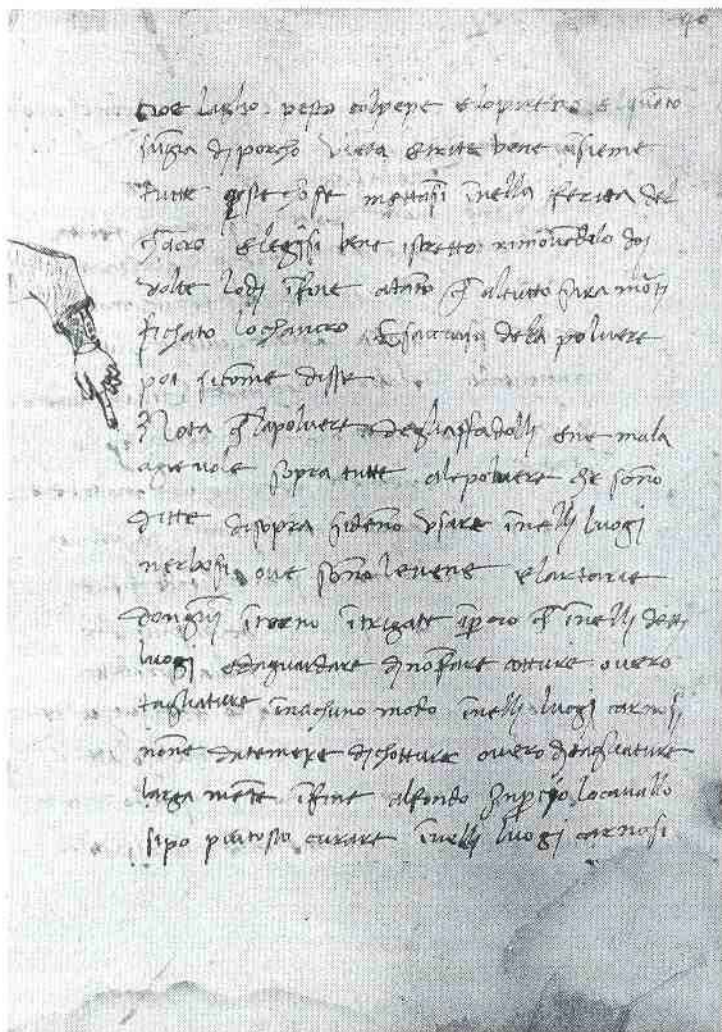 40
cioe laglio pesto col pepe elopiretro e quanto
sungia di porcho viela e trite bene insieme
tutte queste chose mettasi inella ferita del
chancro e leghisi bene istretto rimovendelo doi
volte lo di infine atanto che altutto sira morti
fichato lo chancro de la polvere
poi sicome disse
Nota che lapolvere degliaffadolli ene mala
agievole sopra tutte alepolvere che sonno
ditte disopra sideno usare inelli luogi
nerbosi ove sonno levene elartarie
dongni itorno itrigate iperoio che inelli detti
luogi edaguardare dinofare cotture overo
tagliature inachuno modo inelli luogi carnosi
none datemere dichotture overo ditagliature
larga mente ifine alfondo inpercio locavallo
sipo piutosto curare inelli luogi carnosi